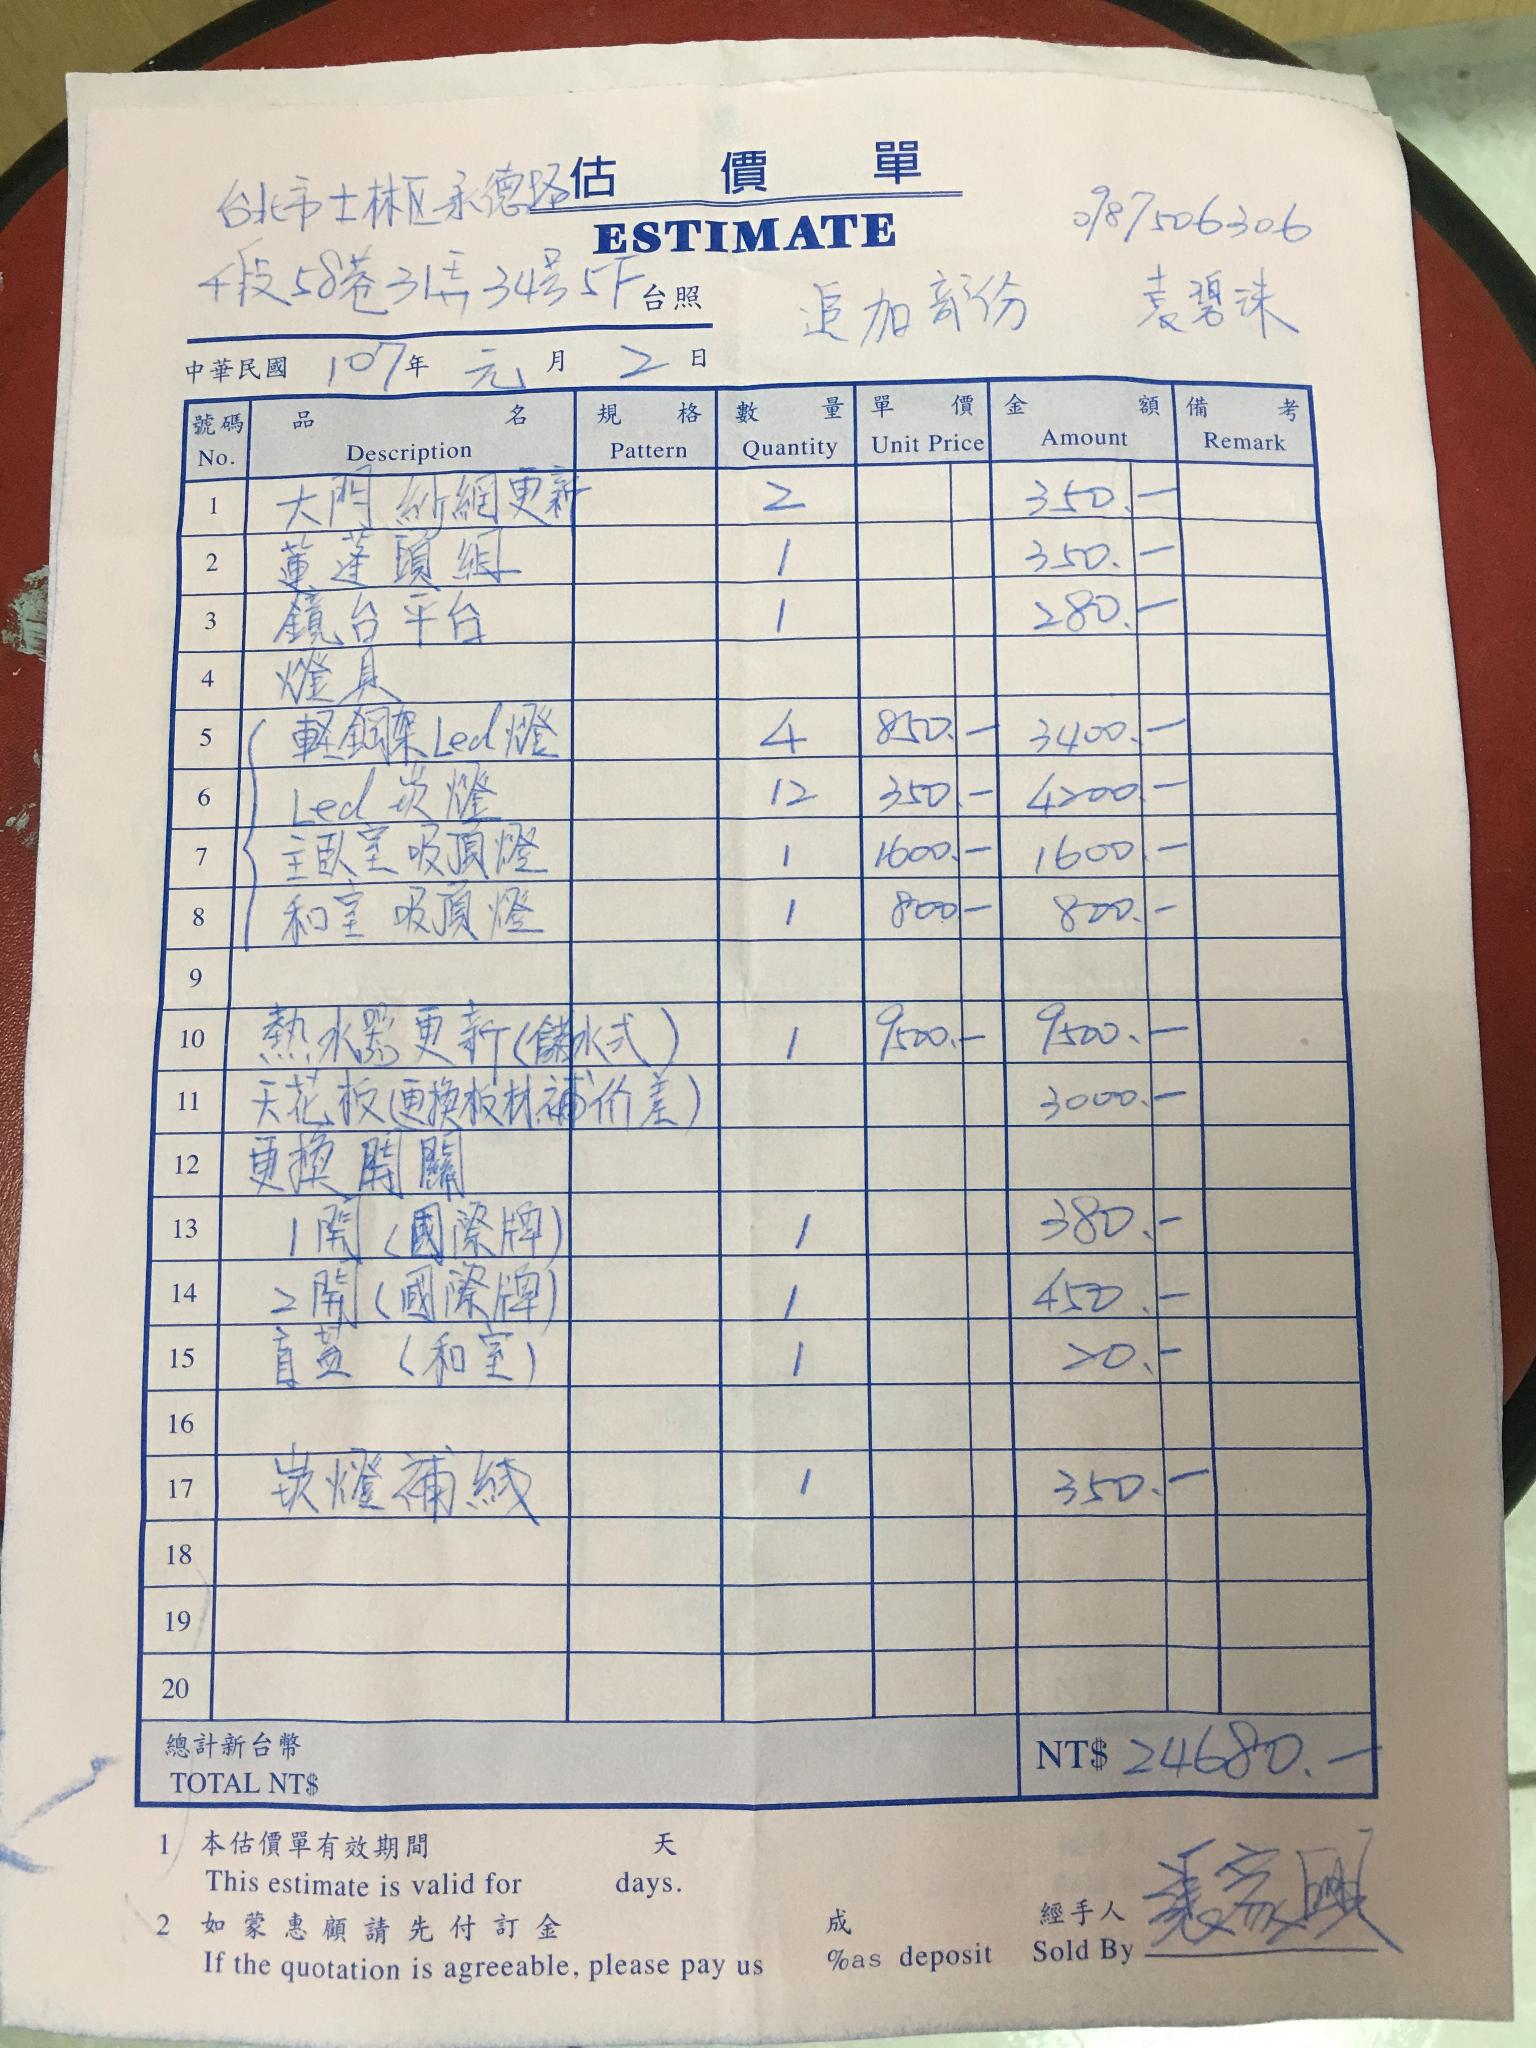 估價單
ESTIMATE
台北市士林区永德路
4段58巷31弄34号5F 台照
0987506306
追加部份 袁碧珠
中華民國 107 年 元 月 2 日
號碼 品名 規格 數量 單價 金額 備考
No. Description Pattern Quantity Unit Price Amount Remark
1 大門 紗網更新 2 350.—
2 蓮蓬頭組 1 350.—
3 鏡台平台 1 280.—
4 燈具
5 輕鋼架Led燈 4 850.— 3400.—
6 Led 崁燈 12 350.— 4200.—
7 主臥室吸頂燈 1 1600.— 1600.—
8 和室吸頂燈 1 800— 800.—
9
10 熱水器更新(儲水式) 1 9500.— 9500.—
11 天花板(更換板材補价差) 3000.—
12 更換開關
13 1開(國際牌) 1 380.—
14 2開(國際牌) 1 450.—
15 盲蓋(和室) 1 20.—
16
17 崁燈補线 1 350.—
18
19
20
總計新台幣
TOTAL NT$ NT$ 24680.—
1 本估價單有效期間 天
This estimate is valid for days.
2 如蒙惠顧請先付訂金 成 經手人
If the quotation is agreeable, please pay us %as deposit Sold By